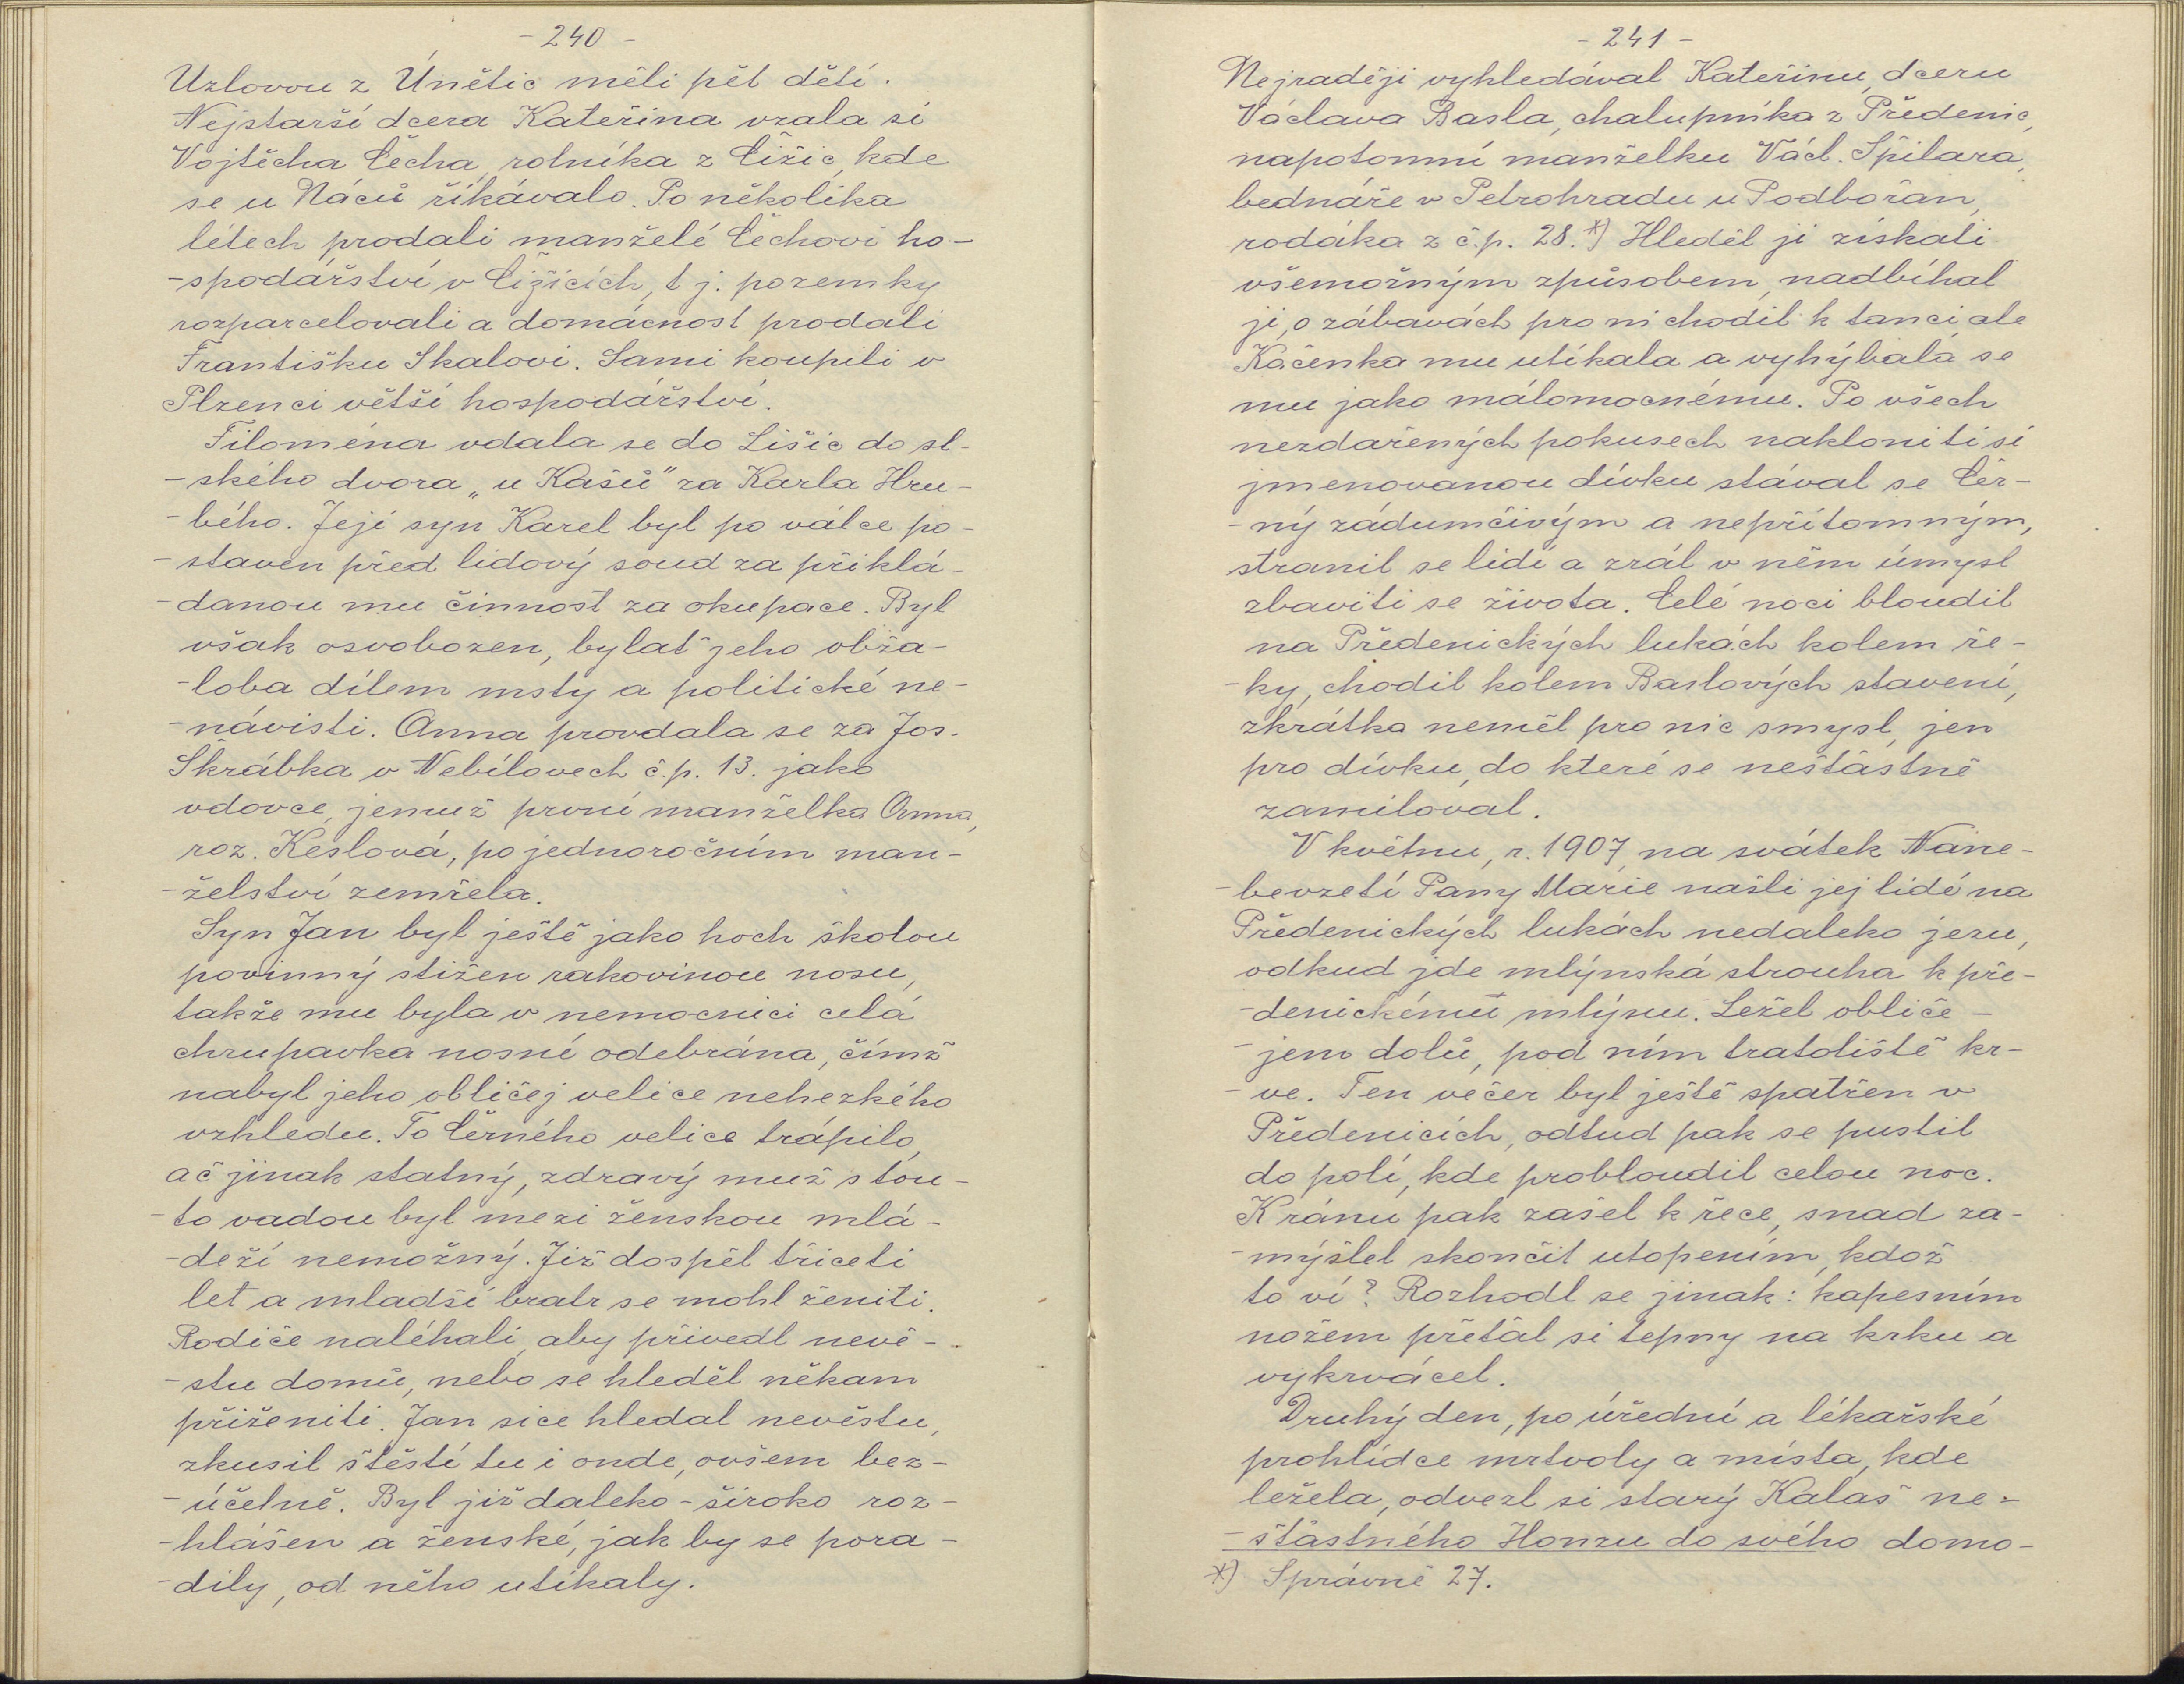 - 240 -
Uzlovou z Únětic měli pět dětí.
Nejstarší dcera Kateřina vzala si
Vojtěcha Čecha, rolníka z Čižic, kde
se u Náců říkávalo. Po několika
létech prodali manželé Čechovi ho-
-spodářství v Čižicích, t j. pozemky
rozparcelovali a domácnost prodali
Františku Skalovi. Sami koupili v
Plzenci větší hospodářství.
Filoména vdala se do Lišic do sl-
-ského dvora „u Kašů" za Karla Hru-
-bého. Její syn Karel byl po válce po-
-staven před lidový soud za přiklá-
-danou mu činnost za okupace. Byl
však osvobozen, bylať jeho obža-
-loba dílem msty a politické ne-
-návisti. Anna provdala se za Jos.
Škrábka v Nebílovech č.p. 13. jako
vdovce, jemuž první manželka Anna,
roz. Keslová, po jednoročním man-
-želství zemřela.
Syn Jan byl ještě jako hoch školou
povinný stižen rakovinou nosu,
takže mu byla v nemocnici celá
chrupavka nosní odebrána, čímž
nabyl jeho obličej velice nehezkého
vzhledu. To Černého velice trápilo,
ač jinak statný, zdravý muž s tou-
-to vadou byl mezi ženskou mlá-
-deží nemožný. Již dospěl třiceti
let a mladší bratr se mohl ženiti.
Rodiče naléhali, aby přivedl nevě-
-stu domů, nebo se hleděl někam
přiženiti. Jan sice hledal nevěstu,
zkusil štěstí tu i onde, ovšem bez-
-účelně. Byl již daleko-široko roz-
-hlášen a ženské, jak by se pora-
-dily, od něho utíkaly.
- 241 -
Nejraději vyhledával Kateřinu, dceru
Václava Basla, chalupníka z Předenic,
napotomní manželku Václ. Špilara,
bednáře v Petrohradu u Podbořan,
rodáka z č.p. 28.*) Hleděl ji získati
všemožným způsobem, nadbíhal
jí, o zábavách pro ni chodil k tanci ale
Kačenka mu utíkala a vyhýbala se
mu jako málomocnému. Po všech
nezdařených pokusech nakloniti si
jmenovanou dívku stával se Čer-
-ný zádumčivým a nepřítomným,
stranil se lidí a zrál v něm úmysl
zbaviti se života. Celé noci bloudil
na Předenických lukách kolem ře-
-ky, chodil kolem Baslových stavení,
zkrátka neměl pro nic smysl, jen
pro dívku, do které se nešťastně
zamiloval.
V květnu, r. 1907, na svátek Nane-
-bevzetí Pany Marie našli jej lidé na
Předenických lukách nedaleko jezu,
odkud jde mlýnská strouha k pře-
-denickému mlýnu. Ležel obliče-
-jem dolů, pod ním tratoliště kr-
-ve. Ten večer byl ještě spatřen v
Předenicích, odtud pak se pustil
do polí, kde probloudil celou noc.
K ránu pak zašel k řece, snad za-
-mýšlel skončit utopením, kdož
to ví? Rozhodl se jinak: kapesním
nožem přeťal si tepny na krku a
vykrvácel.
Druhý den, po úřední a lékařské
prohlídce mrtvoly a místa, kde
ležela, odvezl si starý Kalaš ne-
-šťastného Honzu do svého domo-
*) Správně 27.